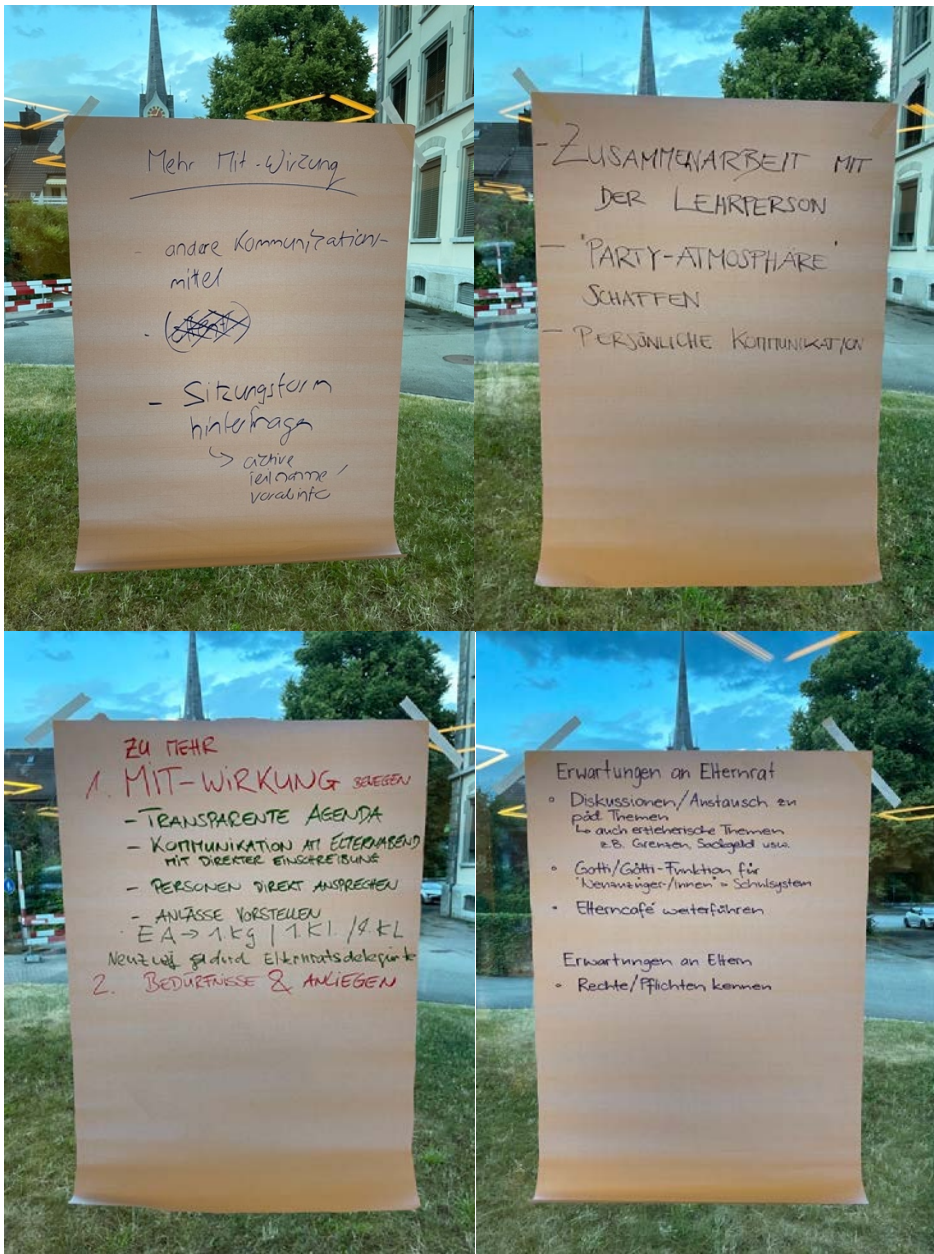 Mehr Mit-Wirkung
- andere Kommunikations-
mittel
- Sitzungsform
hinterfragen
↳ aktive
Teilnahme /
Vorabinfo
- ZUSAMMENARBEIT MIT
DER LEHRPERSON
- "PARTY-ATMOSPHÄRE"
SCHAFFEN
- PERSÖNLICHE KOMMUNIKATION
ZU MEHR
1. MIT-WIRKUNG BEWEGEN
- TRANSPARENTE AGENDA
- KOMMUNIKATION AM ELTERNABEND
MIT DIREKTER EINSCHREIBUNG
- PERSONEN DIREKT ANSPRECHEN
- ANLÄSSE VORSTELLEN
EA → 1. Kg | 1. Kl. / 4. KL
durch Elternratsdelegierte
2. BEDÜRFNISSE & ANLIEGEN
Erwartungen an Elternrat
• Diskussionen/Austausch zu
päd. Themen
↳ auch erzieherische Themen
z.B. Grenzen, Sackgeld usw.
• Gotti/Götti-Funktion für
"Neuzuzüger-/Innen" = Schulsystem
• Elterncafé weiterführen
Erwartungen an Eltern
• Rechte/Pflichten kennen